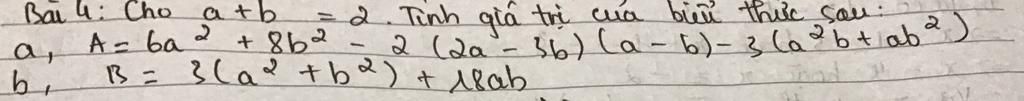 Bài 4: Cho a + b = 2. Tính giá trị của biểu thức sau:
a, A = 6a² + 8b² - 2 (2a - 3b) (a - b) - 3 (a²b + ab²)
b, B = 3(a² + b²) + 18ab